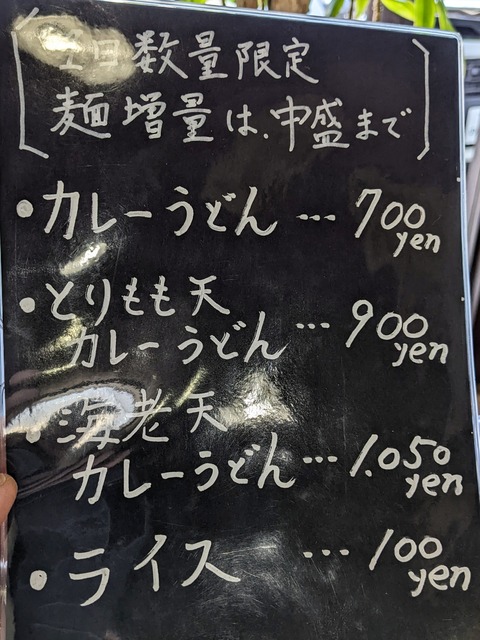 1日数量限定
麺増量は、中盛まで
・カレーうどん…700yen
・とりもも天
カレーうどん…900yen
・海老天
カレーうどん…1.050yen
・ライス …100yen